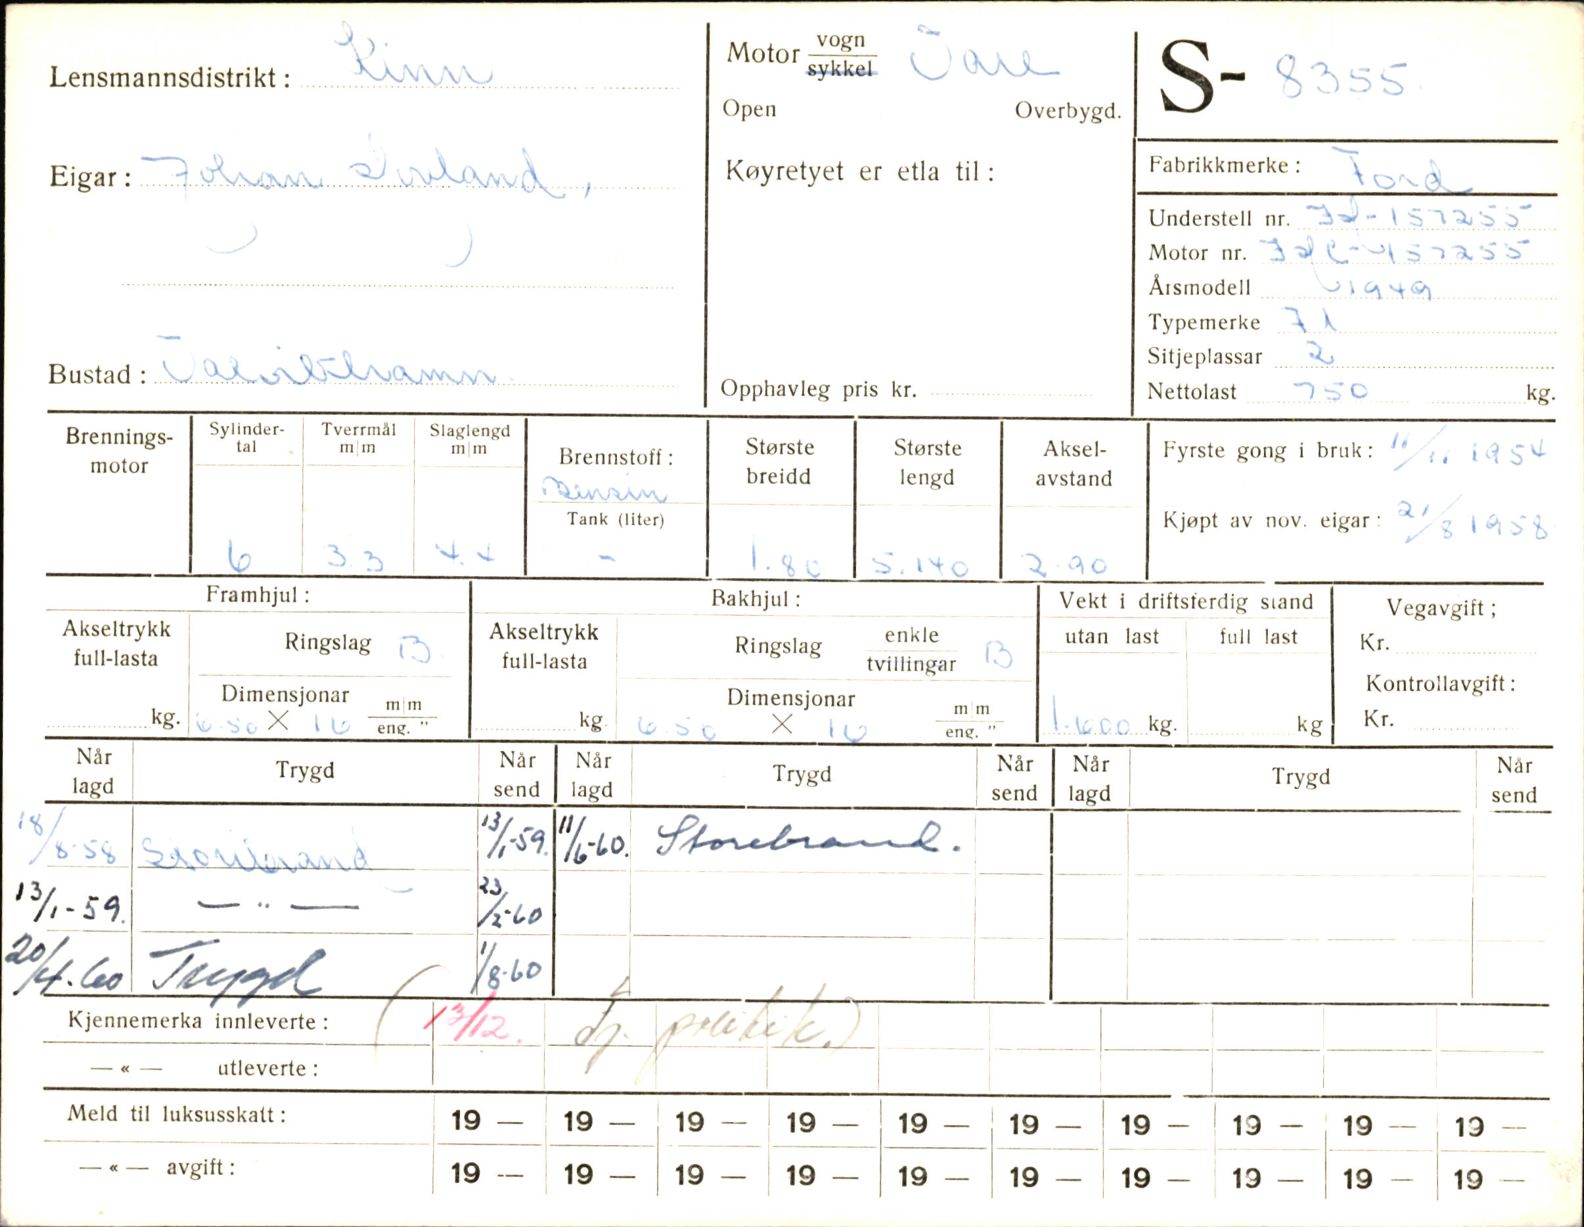 Lensmannsdistrikt: Kinn
Motor vogn Vare
sykkel
Open Overbygd.
S- 8355
Eigar: Johan
Køyretyet er etla til:
Fabrikkmerke: Ford
Understell nr. 7d-157255
Motor nr. 157255
Årsmodell 1949
Typemerke 71
Sitjeplassar 2
Bustad:
Opphavleg pris kr.
Nettolast 750 kg.
Brennings-
motor
Sylinder-
tal
6
Tverrmål
m|m
3.3
Slaglengd
m|m
4.4
Brennstoff:
Bensin
Tank (liter)
-
Største
breidd
1.80
Største
lengd
5.140
Aksel-
avstand
2.90
Fyrste gong i bruk: 11/11 1954
Kjøpt av nov. eigar: 21/8 1958
Framhjul:
Akseltrykk
full-lasta
kg.
Ringslag B
Dimensjonar m|m
6.50 X 16 eng. "
Bakhjul:
Akseltrykk
full-lasta
kg.
Ringslag enkle B
tvillingar
Dimensjonar m|m
6.50 X 16 eng. "
Vekt i driftsferdig stand
utan last full last
1.600 kg. kg
Vegavgift;
Kr.
Kontrollavgift:
Kr.
Når
lagd
Trygd
Når
send
Når
lagd
Trygd
Når
send
Når
lagd
Trygd
Når
send
18/8-58 Storebrand 13/1-59. 11/6-60. Storebrand.
13/1-59. — " — 23/2-60
20/4.60 Trygd 1/8-60
Kjennemerka innleverte: ( 13/12. politik.)
— « — utleverte:
Meld til luksusskatt: 19 — 19 — 19 — 19 — 19 — 19 — 19 — 19 — 19 — 19 —
— « — avgift: 19 — 19 — 19 — 19 — 19 — 19 — 19 — 19 — 19 — 19 —